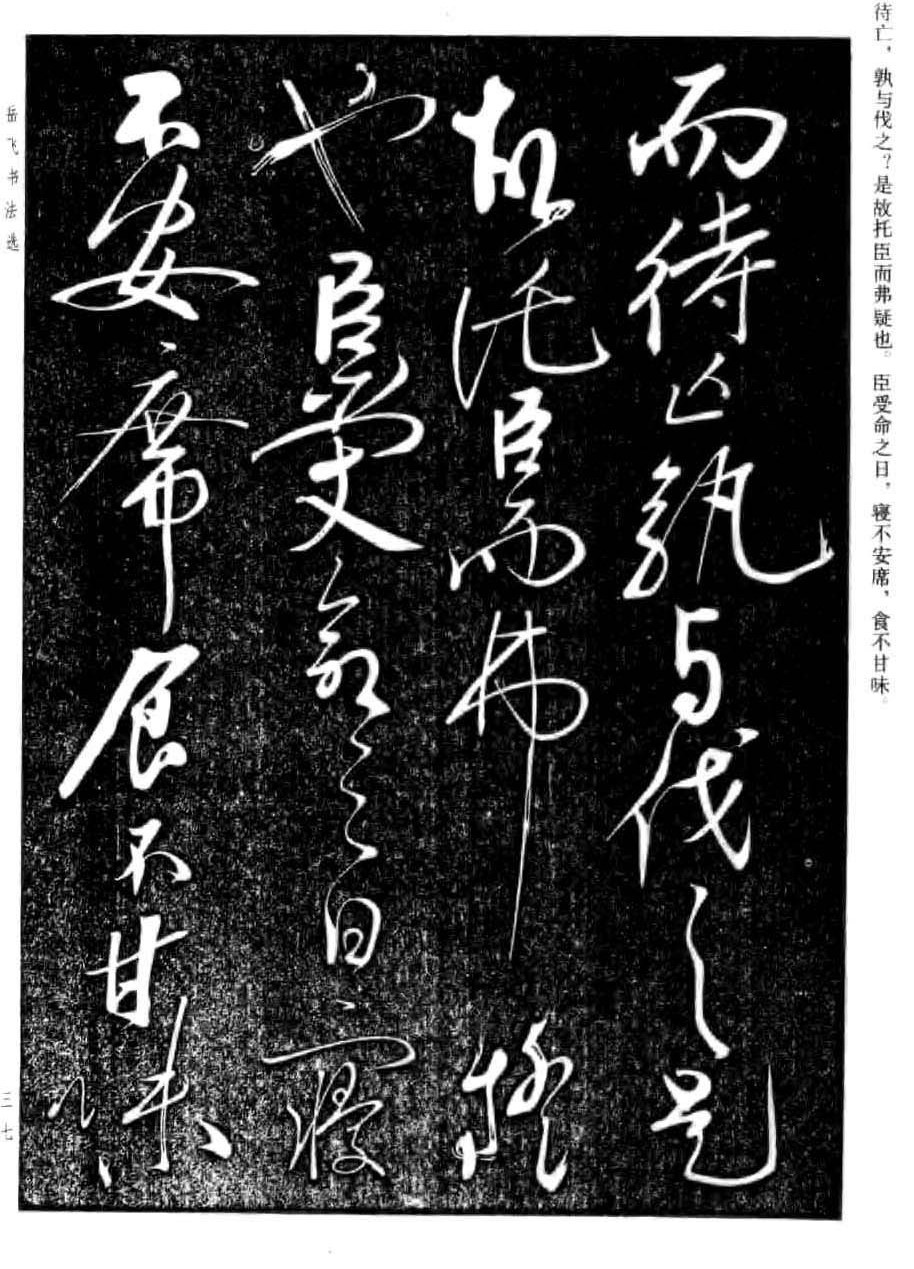 待亡，孰与伐之？是故托臣而弗疑也。臣受命之日，寝不安席，食不甘味。
而待亡孰与伐之是
故托臣而弗疑
也臣受命之日寝
不安席食不甘味
岳飞书法选
三七